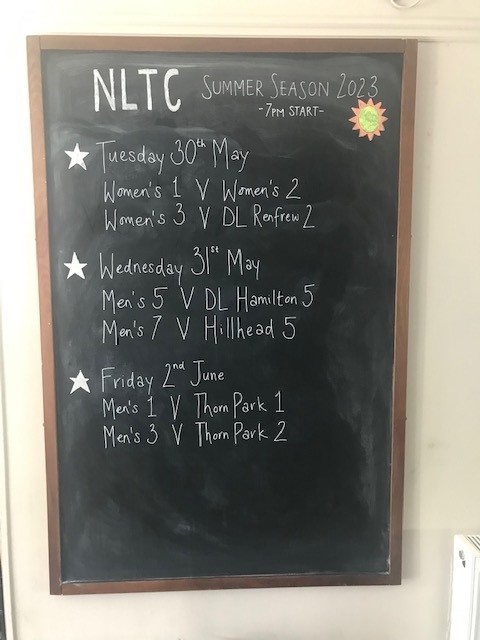 NLTC SUMMER SEASON 2023
-7PM START-
Tuesday 30th May
Women's 1 V Women's 2
Women's 3 V DL Renfrew 2
Wednesday 31st May
Men's 5 V DL Hamilton 5
Men's 7 V Hillhead 5
Friday 2nd June
Men's 1 V Thorn Park 1
Men's 3 V Thorn Park 2